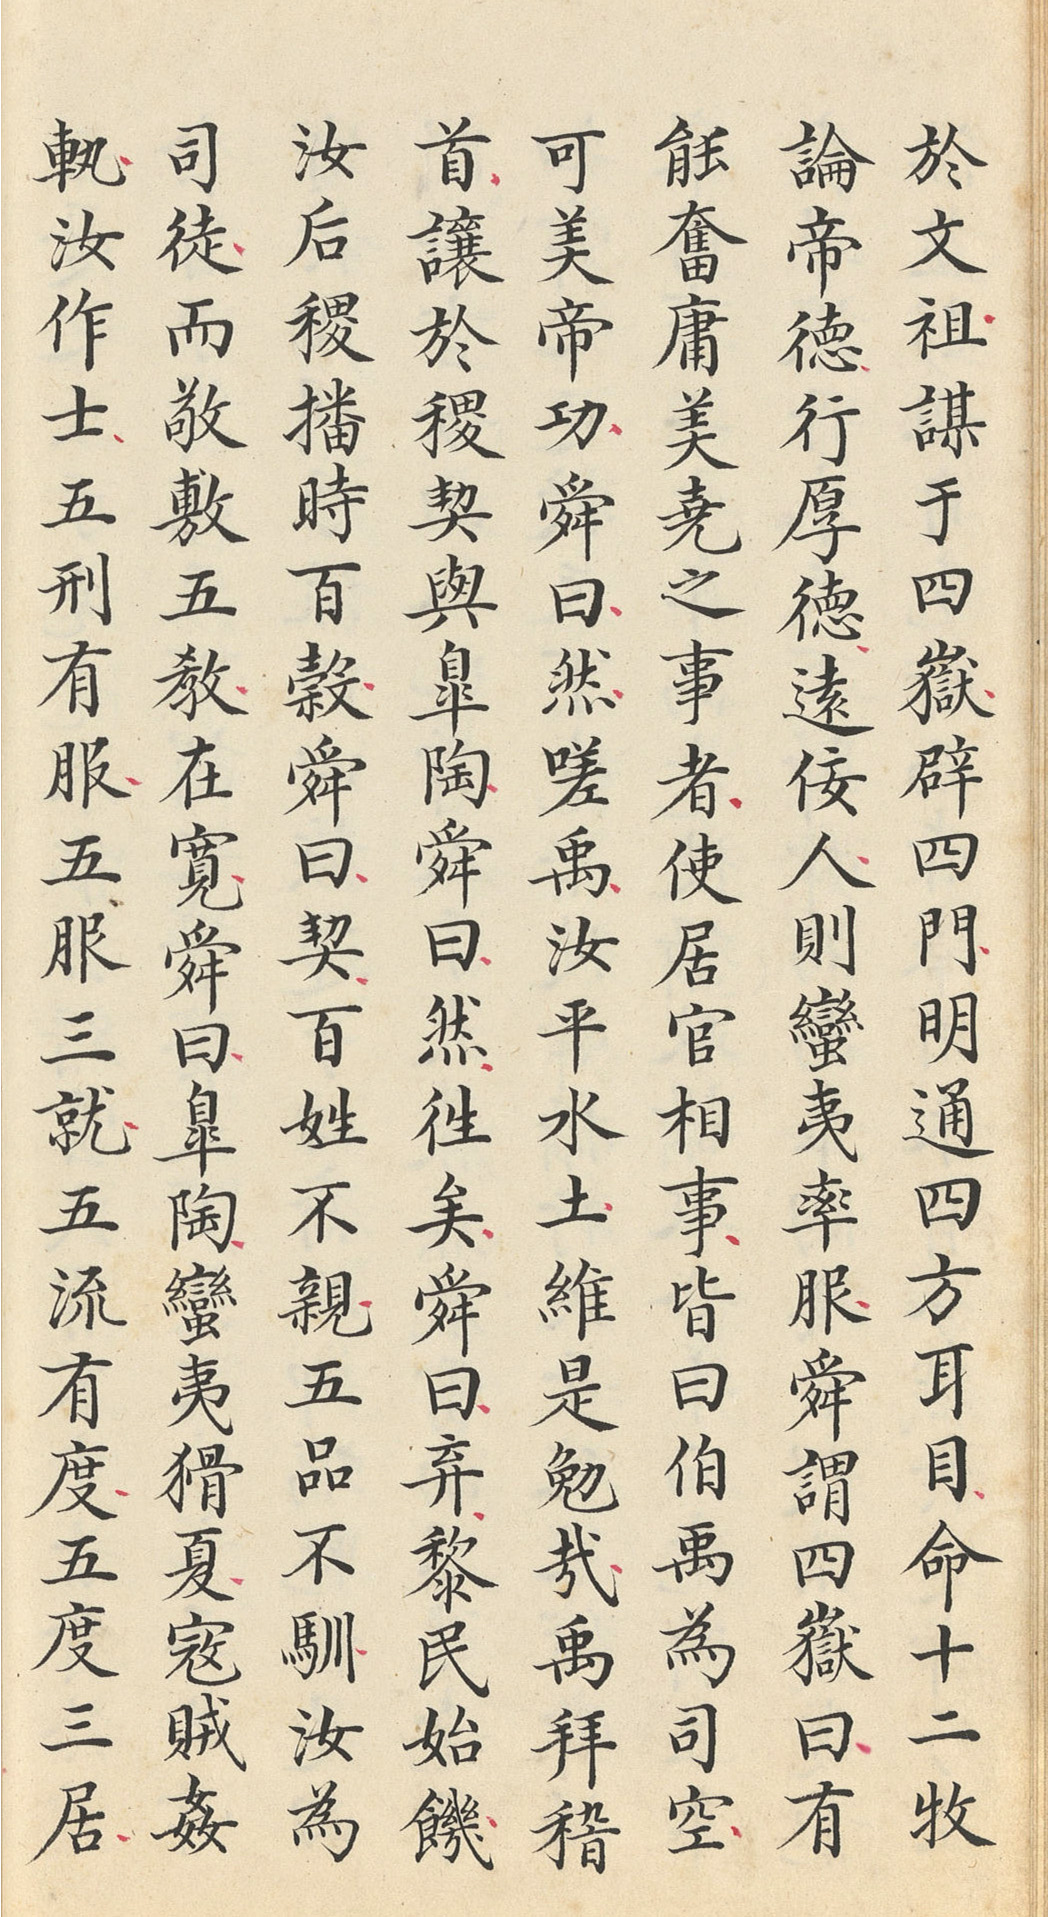 於文祖謀于四嶽辟四門明通四方耳目命十二牧
論帝德行厚德遠佞人則蠻夷率服舜謂四嶽曰有
能奮庸美堯之事者使居官相事皆曰伯禹為司空
可美帝功舜曰然嗟禹汝平水土維是勉哉禹拜稽
首讓於稷契與皐陶舜曰然徃矣舜曰弃黎民始饑
汝后稷播時百穀舜曰契百姓不親五品不馴汝為
司徒而敬敷五教在寬舜曰皐陶蠻夷猾夏寇賊姦
軌汝作士五刑有服五服三就五流有度五度三居